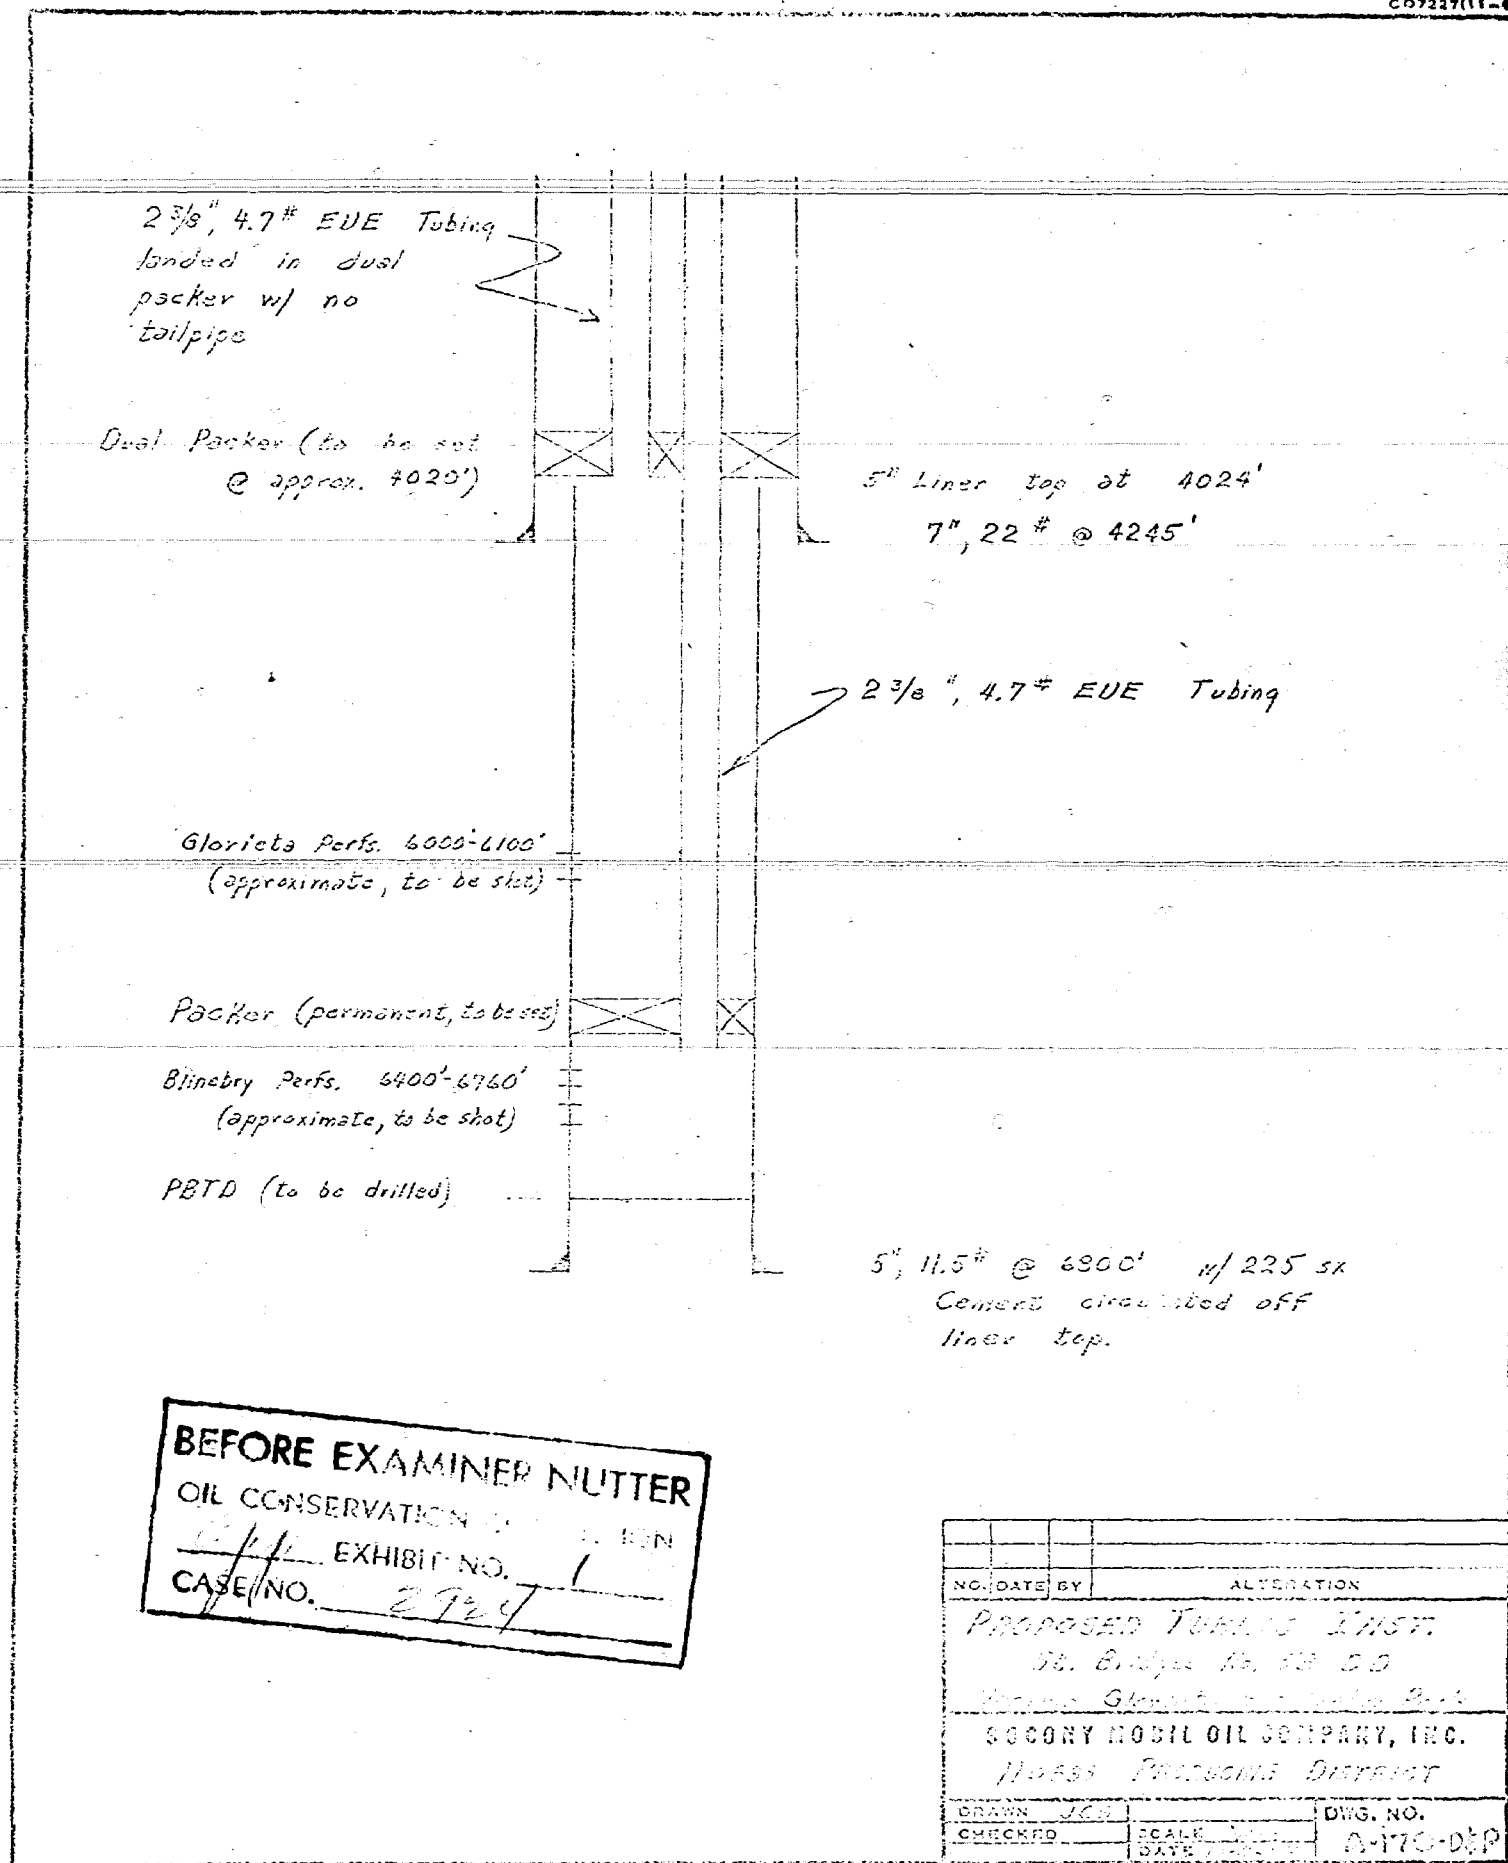 2 3/8", 4.7# EUE Tubing
landed in dual
packer w/ no
tailpipe
Dual Packer (to be set
@ approx. 4020')
5" Liner top at 4024'
7", 22# @ 4245'
2 3/8", 4.7# EUE Tubing
Glorieta Perfs. 6000'-6100'
(approximate, to be shot)
Packer (permanent, to be set)
Blinebry Perfs. 6400'-6760'
(approximate, to be shot)
PBTD (to be drilled)
5", 11.5# @ 6800' w/ 225 sx
Cement circulated off
liner top.
BEFORE EXAMINER NUTTER
OIL CONSERVATION
EXHIBIT NO. 1
CASE NO. 2924
NO. DATE BY ALTERATION
PROPOSED TUBING INST.
St. Bridges No.
SOCONY MOBIL OIL COMPANY, INC.
HOBBS PRODUCING DISTRICT
DRAWN
DWG. NO.
CHECKED
SCALE
DATE